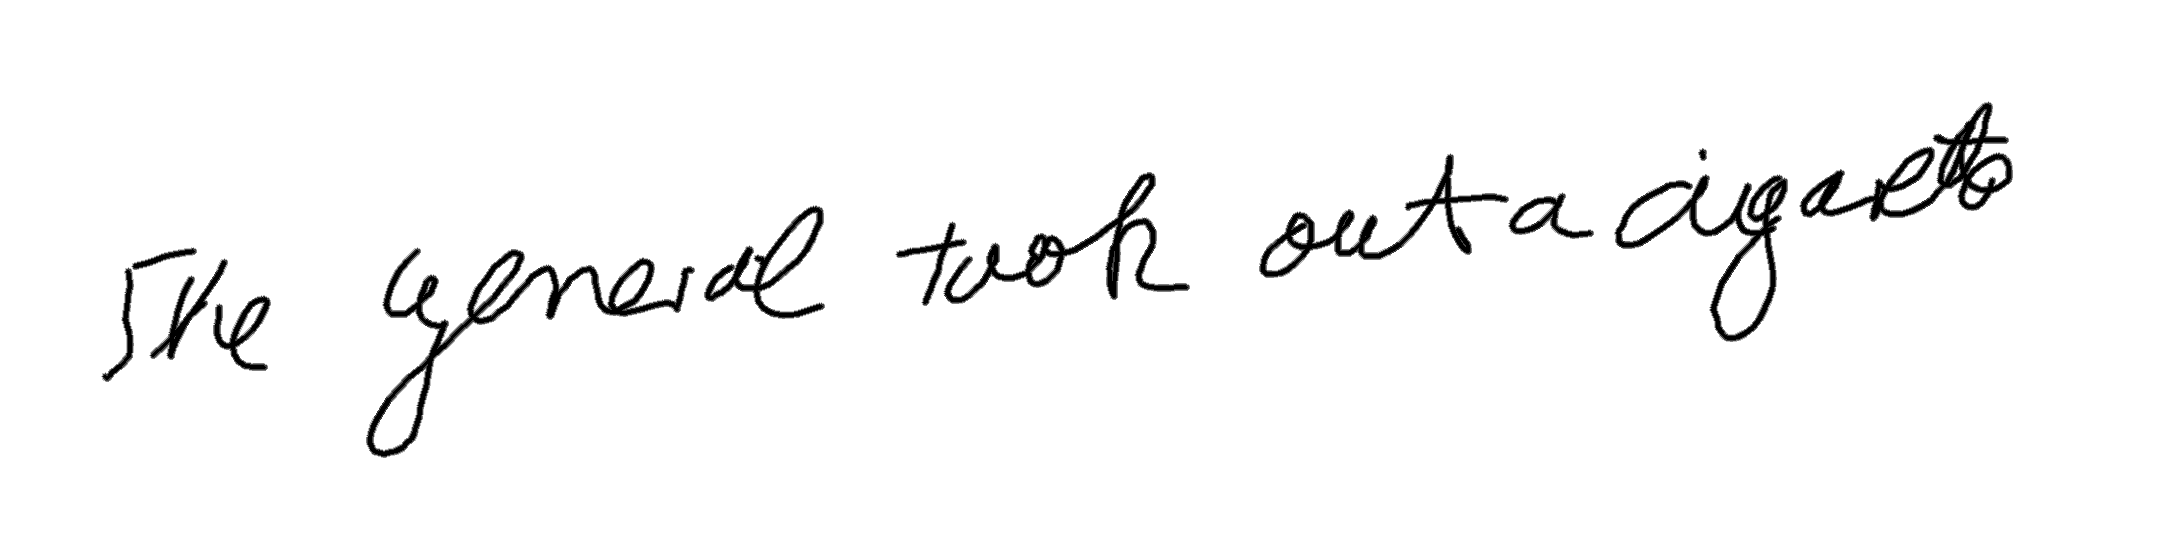 The general took out a cigarette